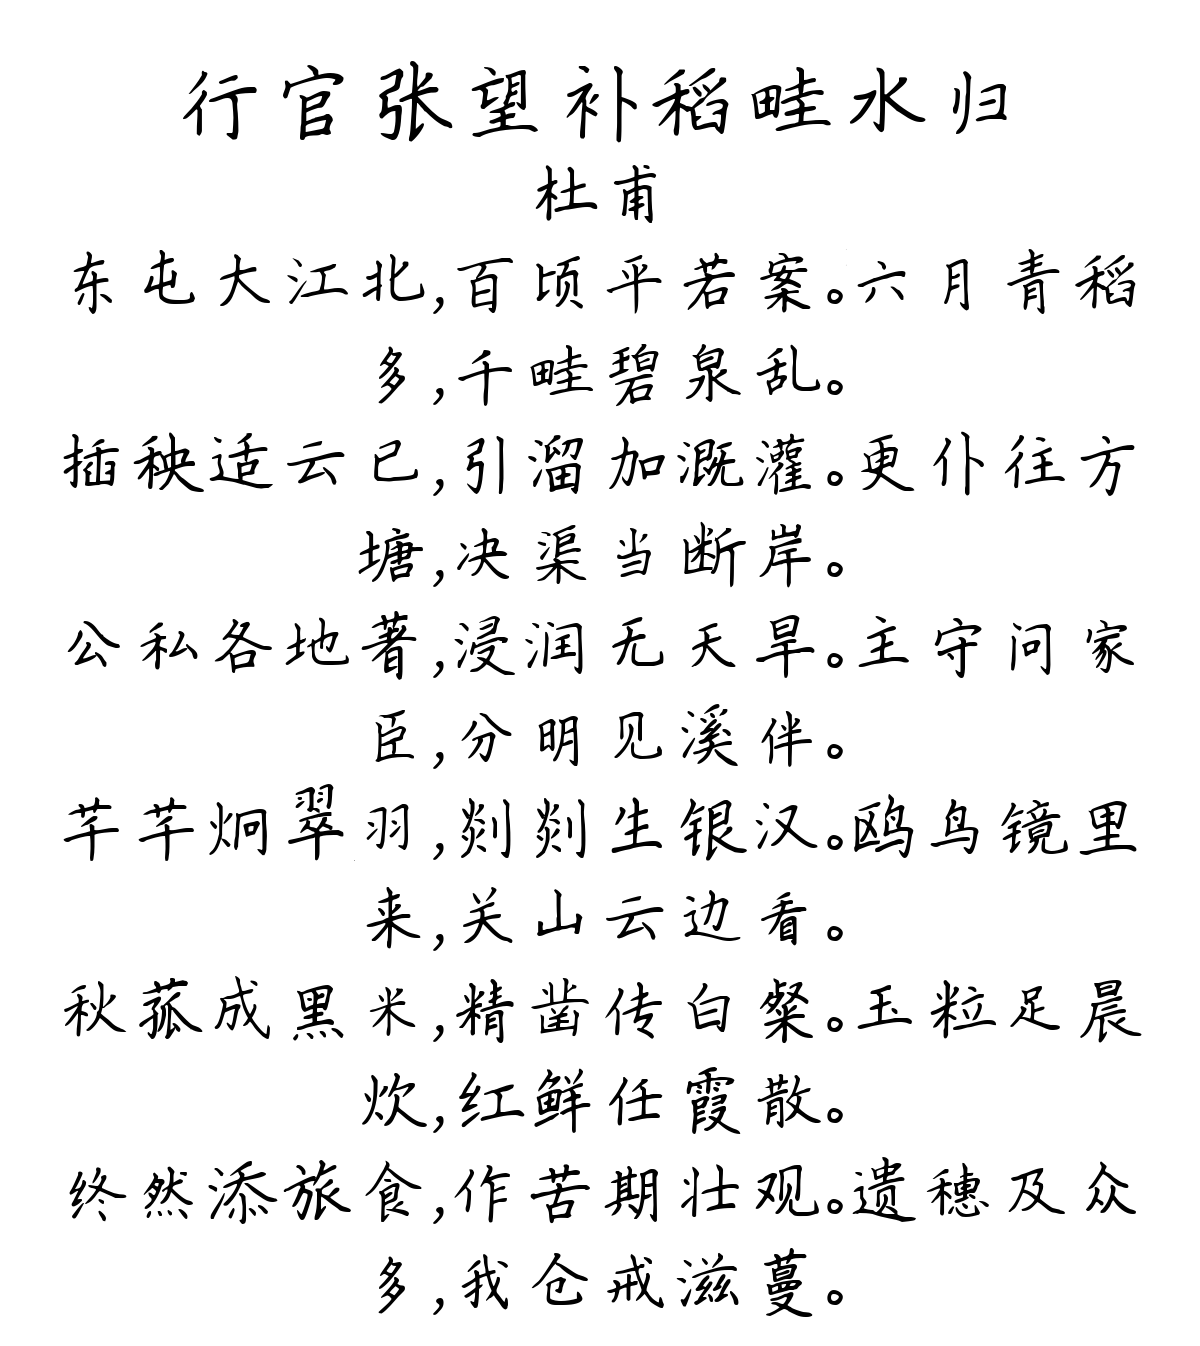 行官张望补稻畦水归
杜甫
东屯大江北,百顷平若案。六月青稻
多,千畦碧泉乱。
插秧适云已,引溜加溉灌。更仆往方
塘,决渠当断岸。
公私各地著,浸润无天旱。主守问家
臣,分明见溪伴。
芊芊炯翠羽,剡剡生银汉。鸥鸟镜里
来,关山云边看。
秋菰成黑米,精凿传白粲。玉粒足晨
炊,红鲜任霞散。
终然添旅食,作苦期壮观。遗穗及众
多,我仓戒滋蔓。